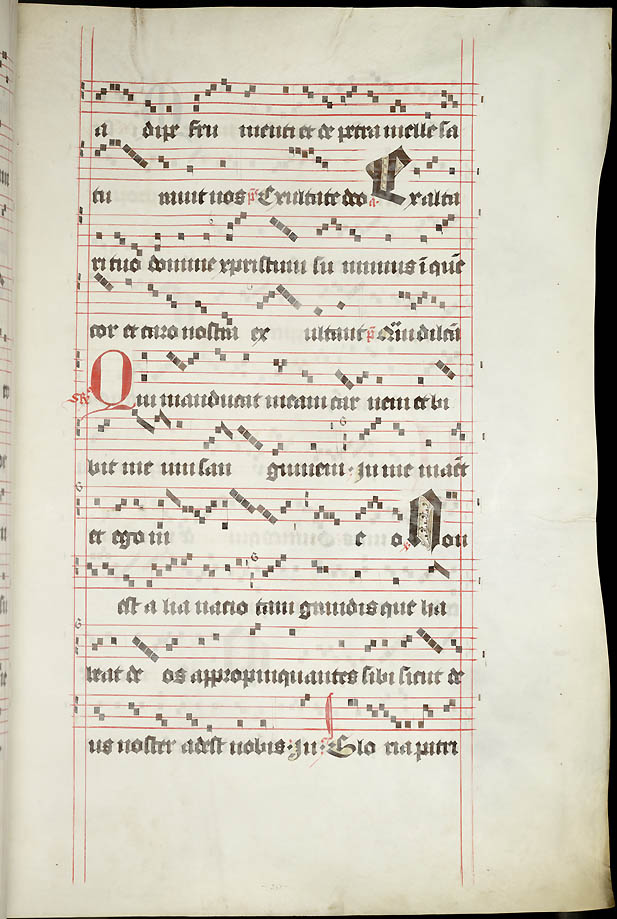 a dipe fru menti et de petra melle sa
tu rauit uos ps Exultate deo a Exulta
ri tuo domine xpristum su mimus i que
cor et caro nostra ex ultant ps Qm dilcta
Qui manducat meam car nem et bi
bit me um san guinem · In me maet
et ego in e o Non
est a lia nacio tam grandis que ha
beat de os appropinquantes sibi sicut de
us noster adest nobis · In · Glo ria patri